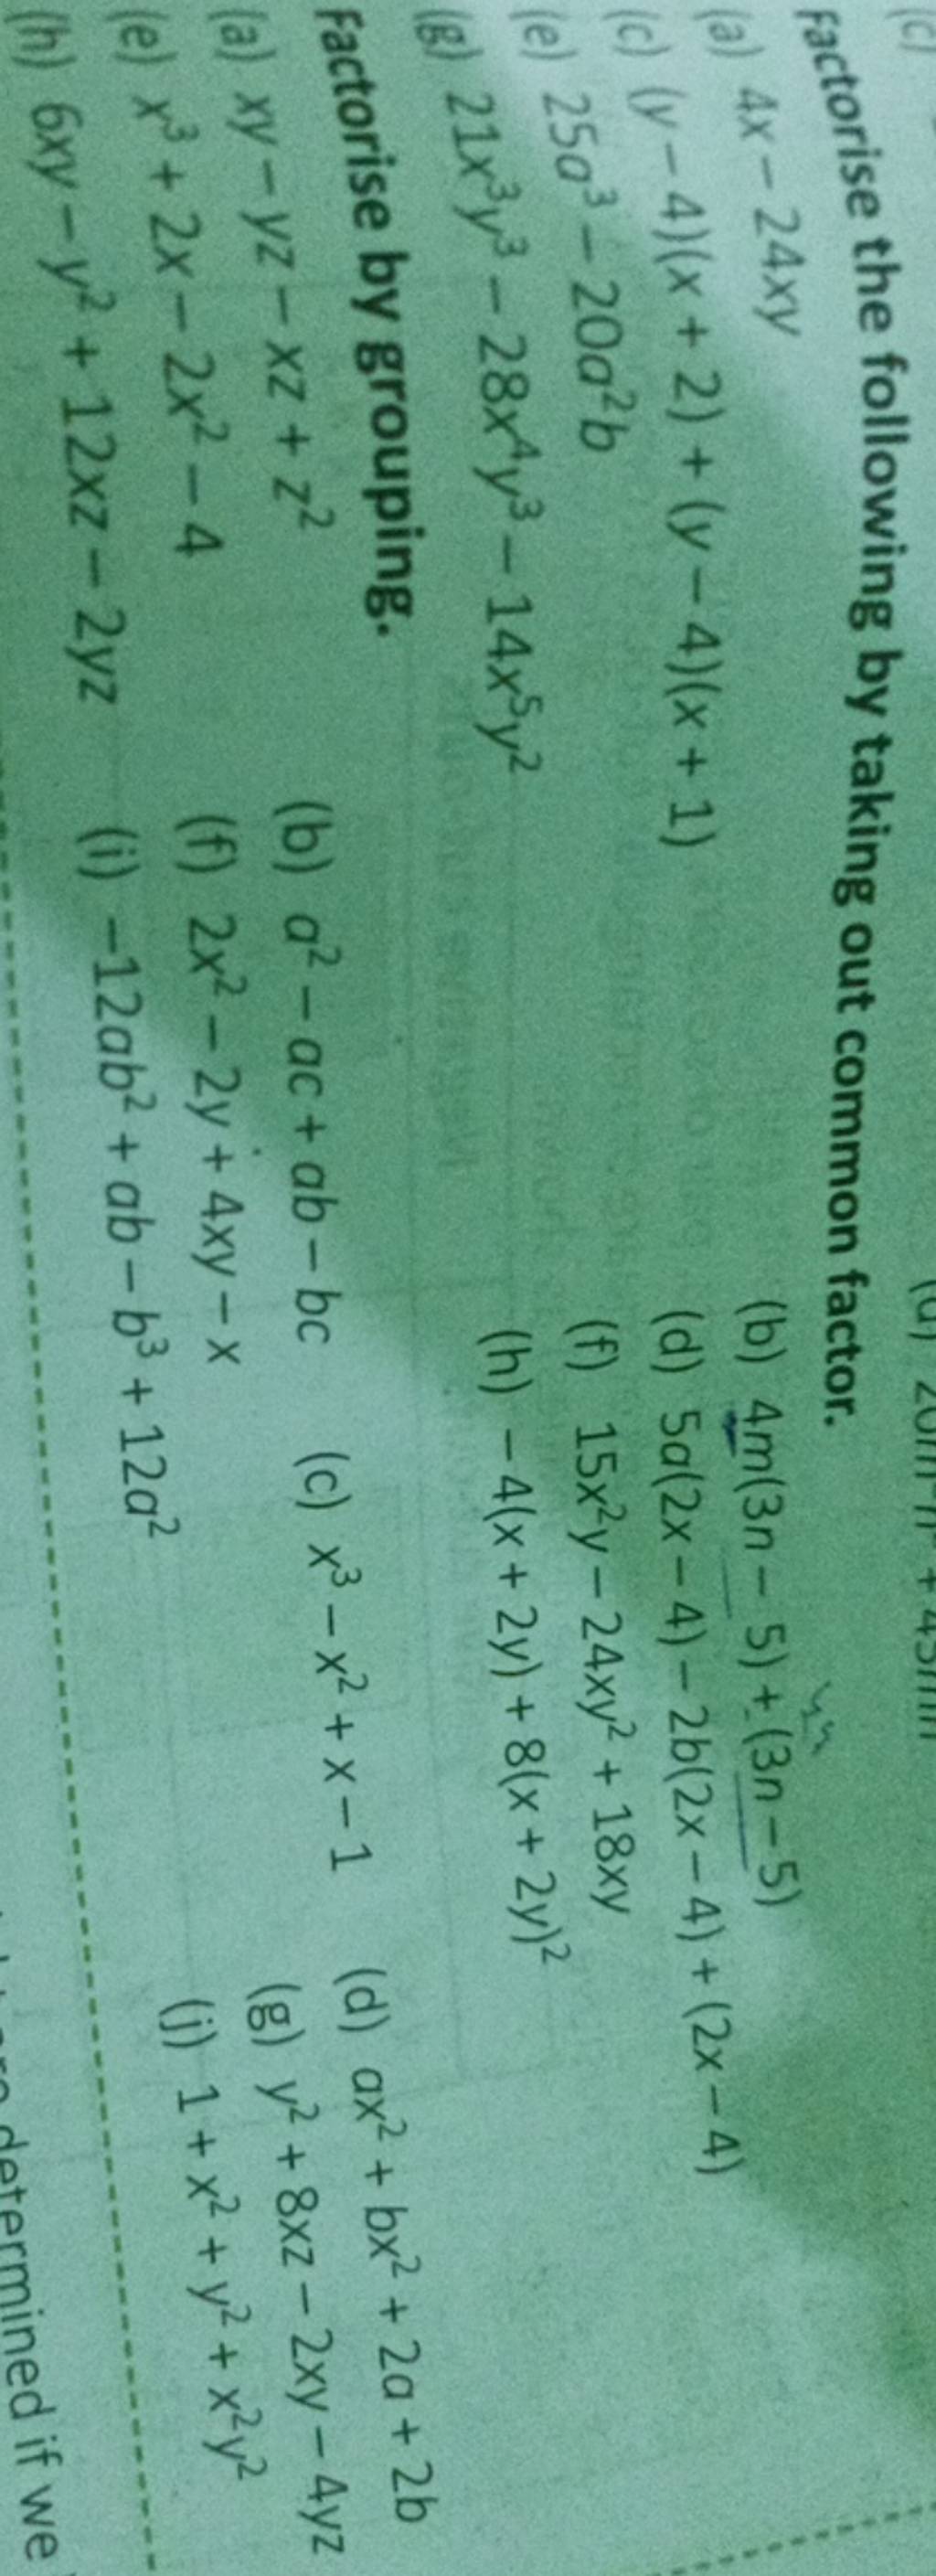 (c)
Factorise the following by taking out common factor.
(a) 4x – 24xy (b) 4m(3n – 5) + (3n – 5)
(c) (y – 4)(x + 2) + (y – 4)(x + 1) (d) 5a(2x – 4) – 2b(2x – 4) + (2x – 4)
(e) 25a³ – 20a²b (f) 15x²y – 24xy² + 18xy
(g) 21x³y³ – 28x⁴y³ – 14x⁵y² (h) – 4(x + 2y) + 8(x + 2y)²
Factorise by grouping.
(a) xy – yz – xz + z² (b) a² – ac + ab – bc (c) x³ – x² + x – 1 (d) ax² + bx² + 2a + 2b
(e) x³ + 2x – 2x² – 4 (f) 2x² – 2y + 4xy – x (g) y² + 8xz – 2xy – 4yz
(h) 6xy – y² + 12xz – 2yz (i) –12ab² + ab – b³ + 12a² (j) 1 + x² + y² + x²y²
determined if we